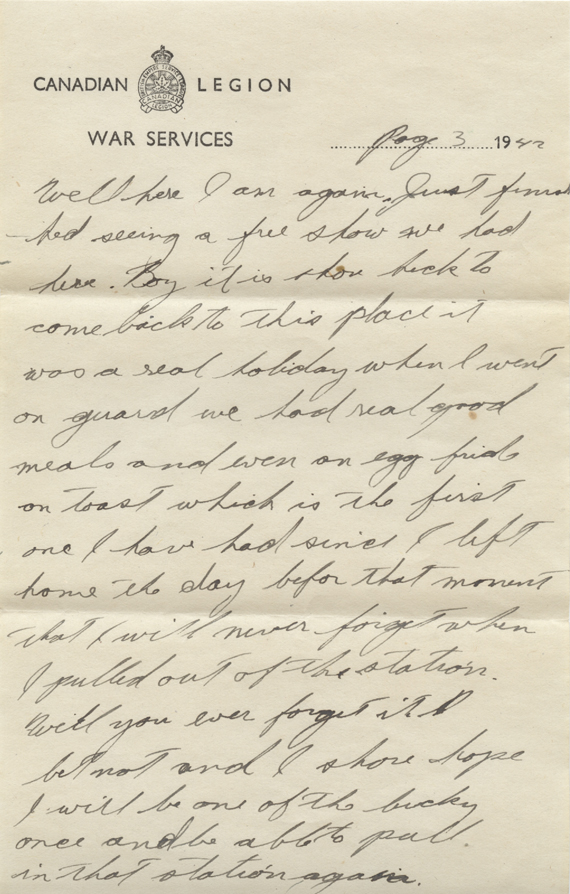 CANADIAN LEGION
WAR SERVICES
Page 3 1942
Well here I am again. Just finis
hed seeing a free show we had
here. Boy it is shore heck to
come back to this place it
was a real holiday when I went
on guard we had real good
meals and even an egg fride
on toast which is the first
one I have had since I left
home the day befor that moment
that I will never forget when
I pulled out of the station.
Will you ever forget it I
bet not and I shore hope
I will be one of the lucky
once and be able to pull
in that station again.